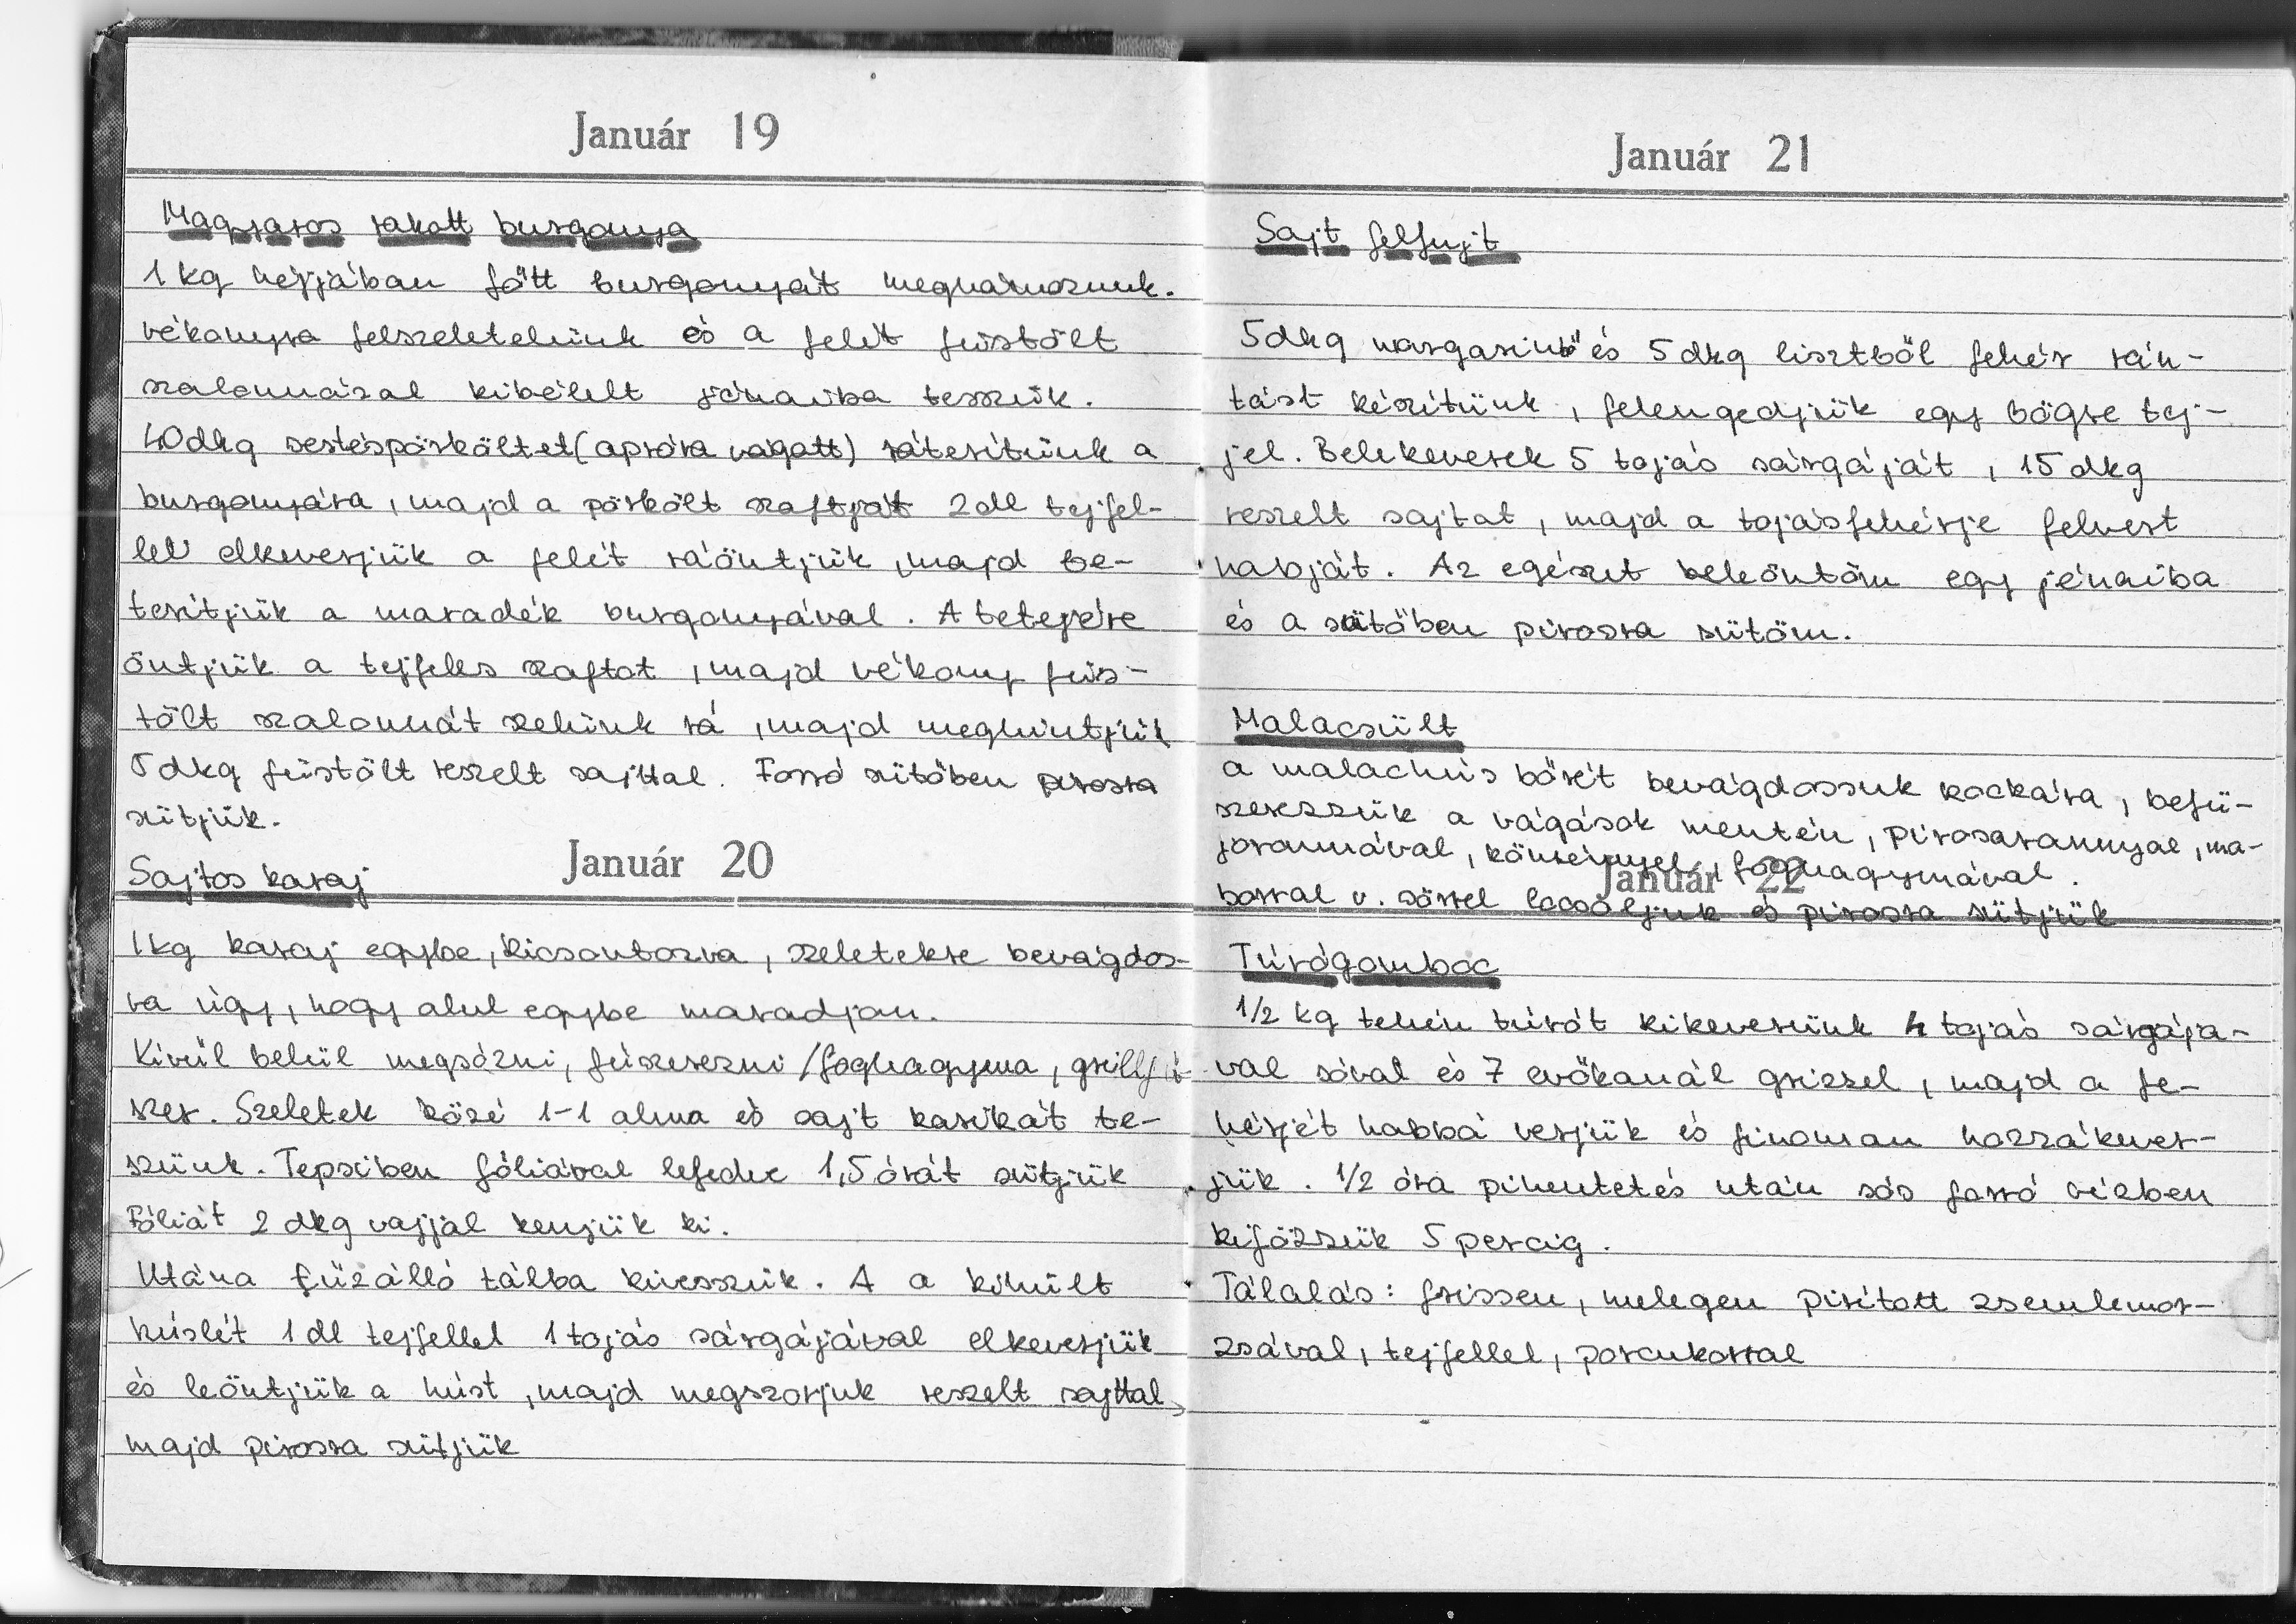 Január 19
Magyaros rakott burgonya
1 kg héjjában főtt burgonyát meghámozunk.
vékonyra felszeletelünk és a felét füstölt
szalonnázal kibélelt jénaiba tesszük.
40 dkg sertéspörköltet (apróra vágott) ráterítünk a
burgonyára, majd a pörkölt szaftját 2 dl tejfel-
lel elkeverjük a felét ráöntjük, majd be-
terítjük a maradék burgonyával. A tetejére
öntjük a tejfeles szaftot, majd vékony füs-
tölt szalonnát szelünk rá, majd meghintjük
5 dkg füstölt reszelt sajttal. Forró sütőben pirosra
sütjük.
Január 20
Sajtos karaj
1 kg karaj egybe, kicsontozva, szeletekre bevágdos-
va úgy, hogy alul egybe maradjon.
Kívül belül megsózni, fűszerezni /foghagyma, grillfű-
szer. Szeletek közé 1-1 alma és sajt karikát te-
szünk. Tepsiben fóliával lefedve 1,5 órát sütjük
Fóliát 2 dkg vajjal kenjük ki.
Utána tűzálló tálba kivesszük. A a kihűlt
húslét 1 dl tejfellel 1 tojás sárgájával elkeverjük
és leöntjük a húst, majd megszorjuk reszelt sajttal
majd pirosra sütjük
Január 21
Sajt felfujt
5 dkg margarinbó és 5 dkg lisztből fehér rán-
tást készítünk, felengedjük egy bögre tej-
jel. Belekeverek 5 tojás sárgáját, 15 dkg
reszelt sajtot, majd a tojásfehérje felvert
habját. Az egészet beleöntöm egy jénaiba
és a sütőben pirosra sütöm.
Malacsült
a malachús bőrét bevágdossuk kockára, befü-
szerezzük a vágások mentén, pirosarannyal, ma-
jorannával, köménnyel, foghagymával.
Január 22
borral v. sörrel locsoljuk és pirosra sütjük
Túrógomboc
1/2 kg tehén túrót kikeverünk 4 tojás sárgája-
val sóval és 7 evőkanál grizzel, majd a fe-
hérjét habbá verjük és finoman hozzákever-
jük. 1/2 óra pihentetés után sós forró vízben
kifőzzük 5 percig.
Tálalás: frissen, melegen pirított zsemlemor-
zsával, tejfellel, porcukorral